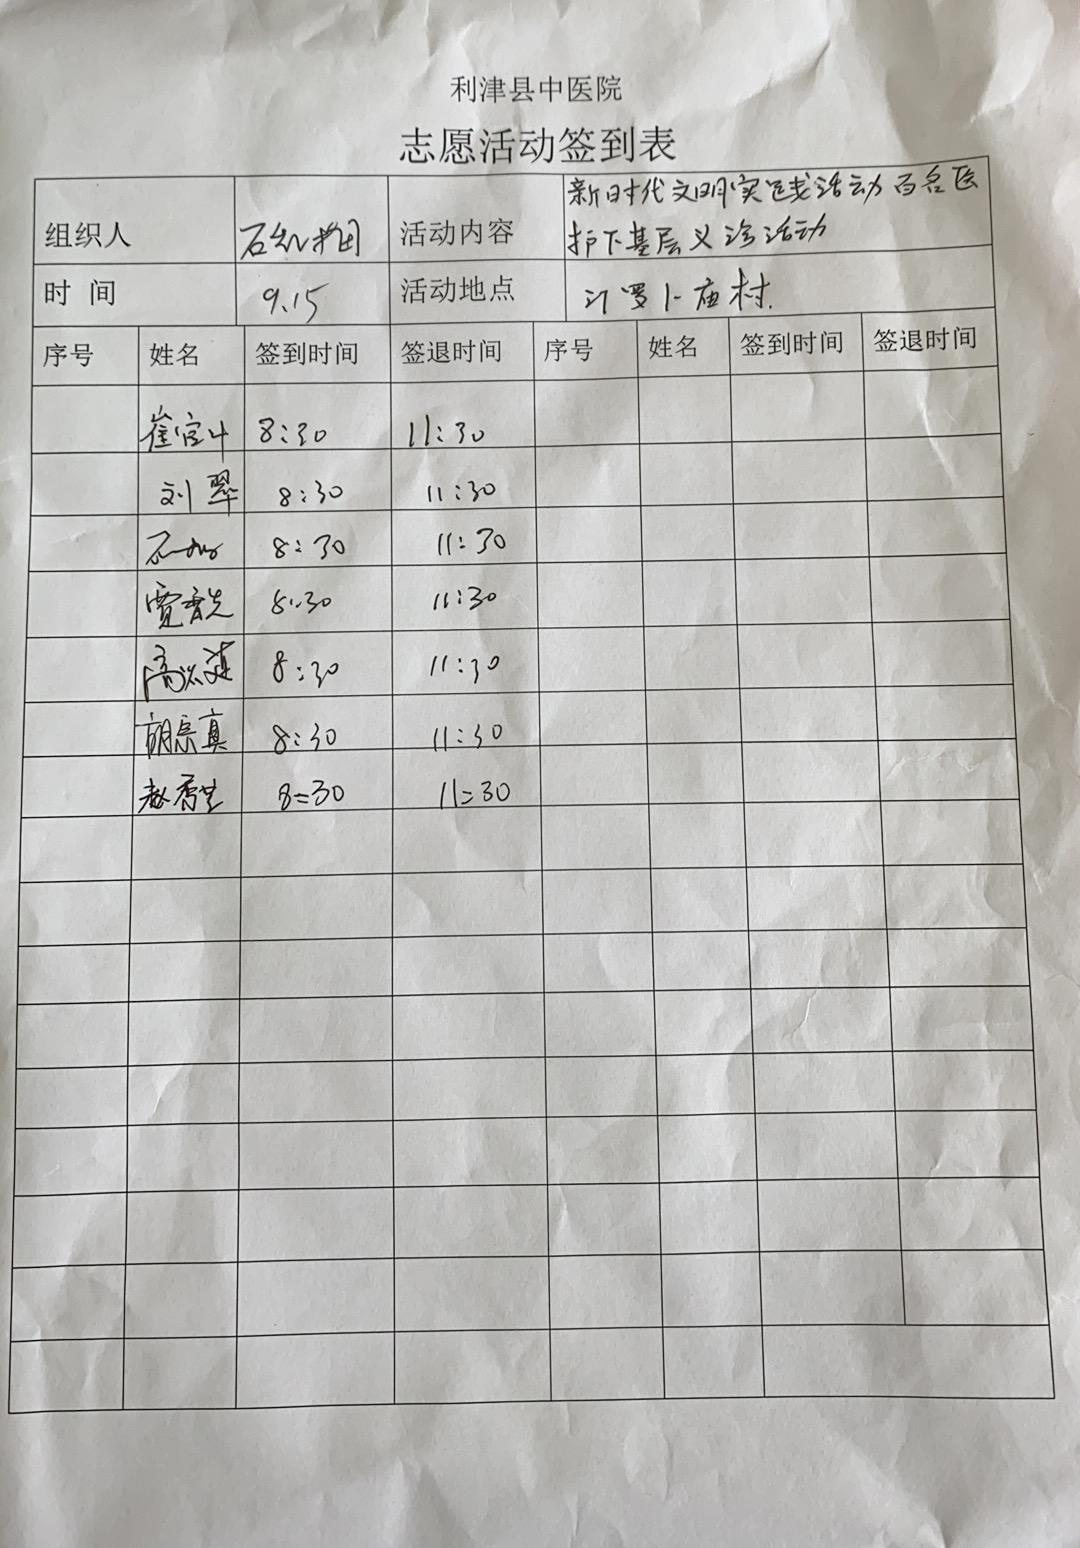 利津县中医院
志愿活动签到表
组织人 活动内容 新时代文明实践活动百名医
护下基层义诊活动
时 间 9.15 活动地点 卜庙村
序号 姓名 签到时间 签退时间 序号 姓名 签到时间 签退时间
崔 8:30 11:30
刘翠 8:30 11:30
8:30 11:30
贾 8:30 11:30
高 8:30 11:30
胡宗真 8:30 11:30
赵秀 8:30 11:30